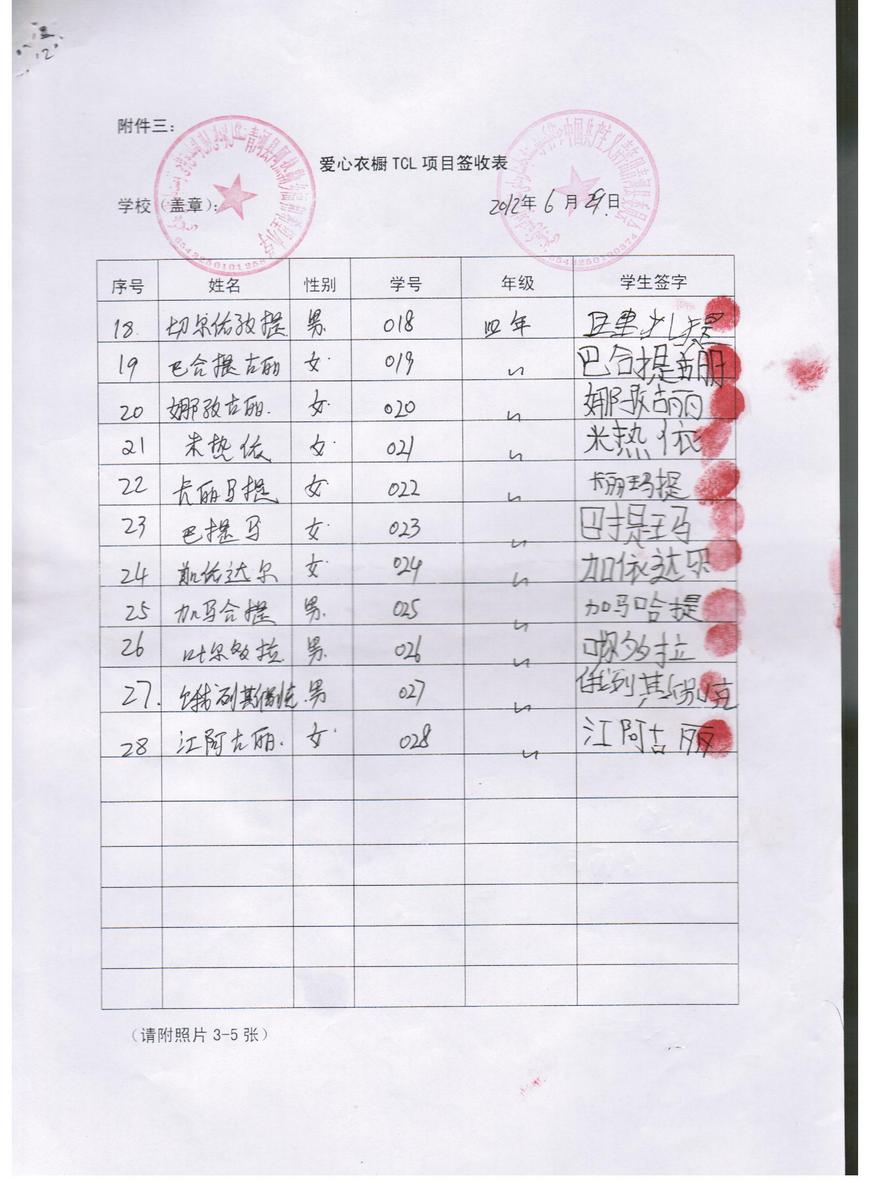 附件三：
爱心衣橱 TCL 项目签收表
学校（盖章）： 2012年 6 月 29 日
6543250101258
序号 姓名 性别 学号 年级 学生签字
18. 男 018 四年
19 巴合提古丽 女 019 〃 巴合提古丽
20 娜孜古丽. 女 020 〃 娜孜古丽
21 米热依 女 021 〃 米热依
22 卡丽马提 女 022 〃 卡丽玛提
23 巴提马 女 023 〃 巴提玛
24 加依达尔 女 024 〃 加依达尔
25 加马合提 男. 025 〃 加马哈提
26 男. 026 〃
27. 俄列其 男 027 〃 俄列其
28 江阿古丽. 女 028 〃 江阿古丽
（请附照片 3-5 张）